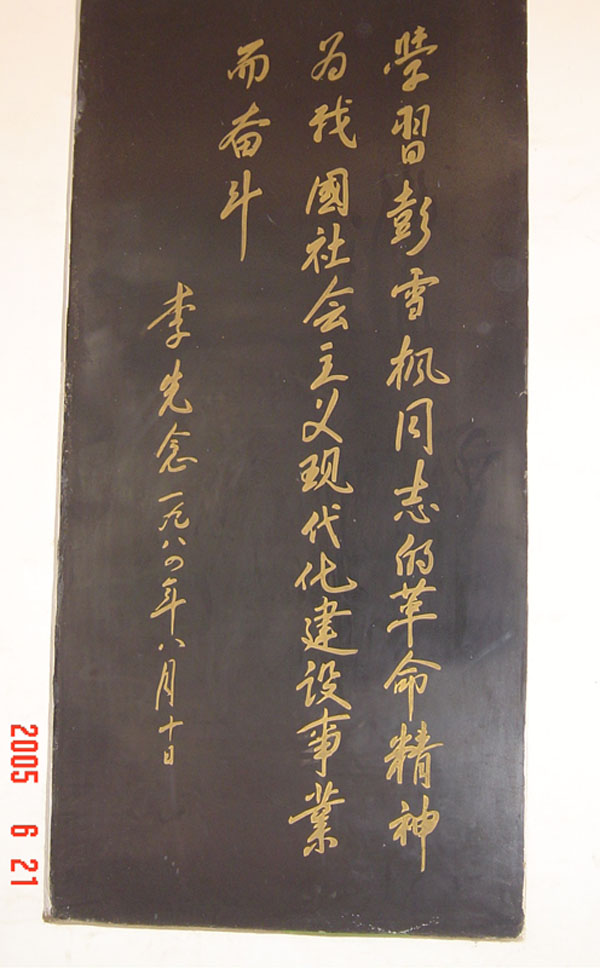 學習彭雪枫同志的革命精神
为我國社会主义现代化建设事業
而奋斗
李先念一九八四年八月十日
2005 6 21